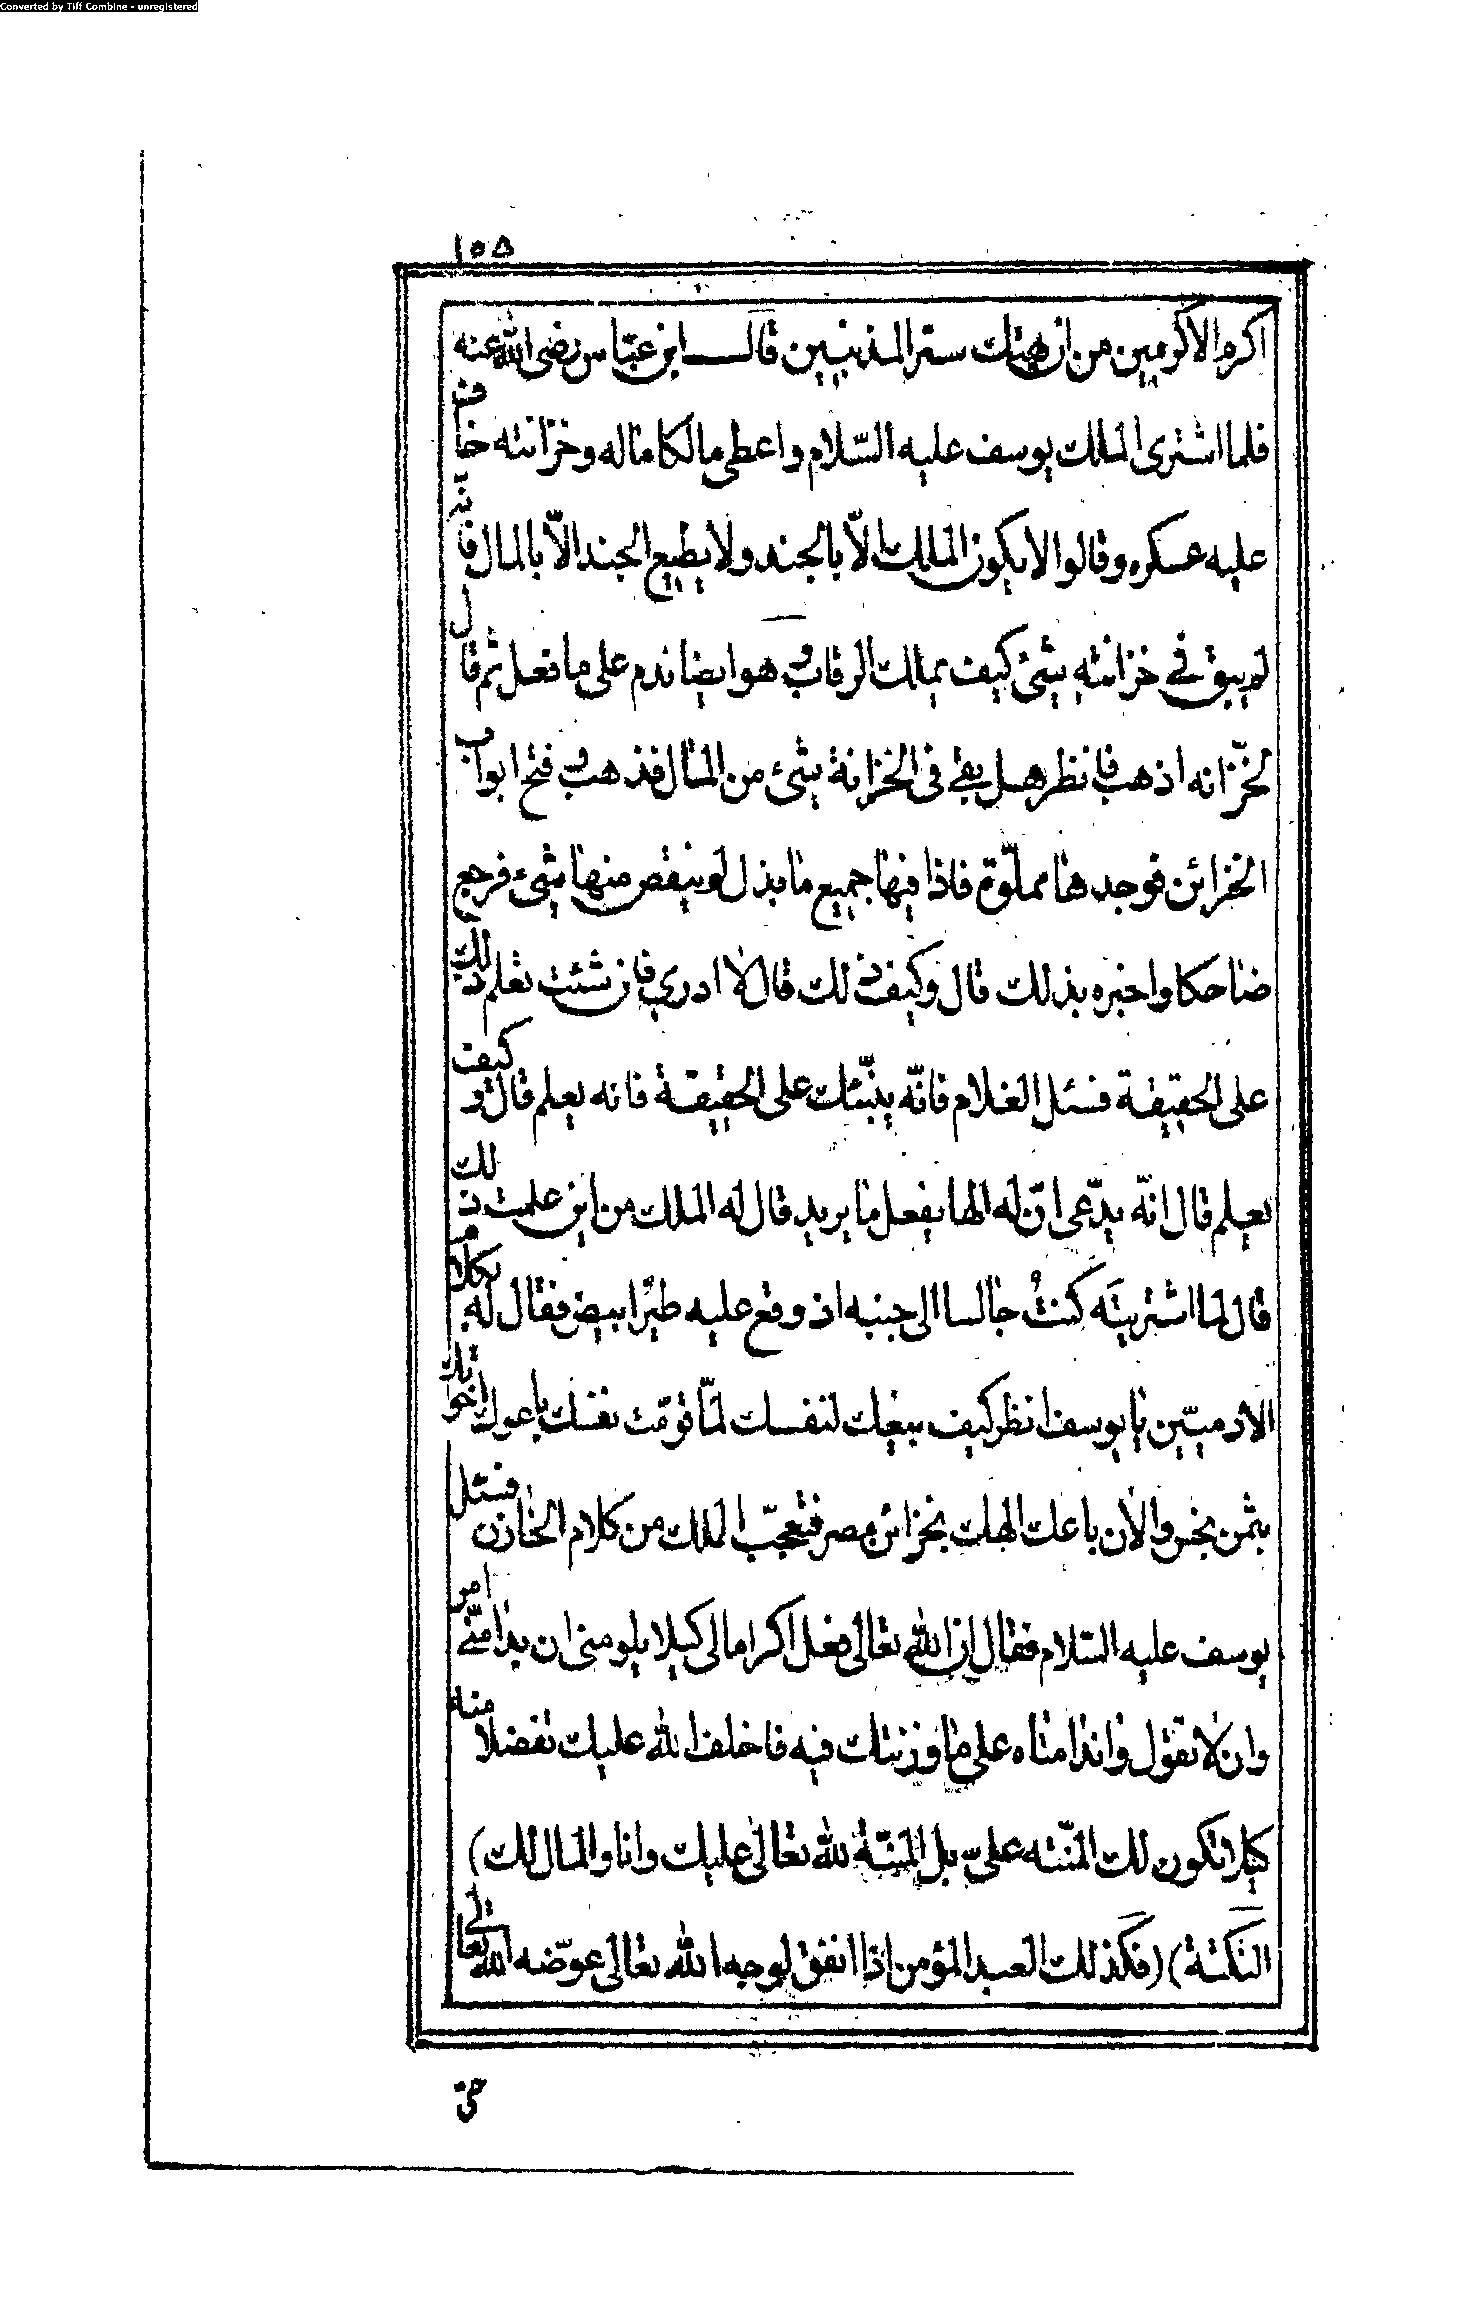 Converted by Tiff Combine - unregistered
١٥٥
اكرم الاكرمين من ان هتك ستر المذنبين قال ابن عباس رضى الله عنه
فلما اشترى الملك يوسف عليه السّلام واعطى مالكا ماله وخزانته خافت
عليه عسكره وقالوا لا يكون الملك الّا بالجند ولا يطيع الجند الّا بالمال فاذا
لم يبق في خزانته شئ كيف يملك الرقاب وهو ايضا ندم على ما فعل ثم قال
لخزّانه اذهب فانظر هل بقي فى الخزانة شئ من المال فذهب وفتح ابواب
الخزائن فوجدها مملوّة فاذا فيها جميع ما بذل لم ينقص منها شئ فرجع
ضاحكا واخبره بذلك قال وكيف ذلك قال لا ادري فان شئت تعلم ذلك
على الحقيقة فسئل الغلام فانّه ينبّئك على الحقيقة فانه يعلم قال وكيف
يعلم قال انّه يدّعى انّ له الها يفعل ما يريد قال له الملك من اين علمت ذلك
قال لما اشتريته كنت جالسا الى جنبه اذ وقع عليه طيرا ابيض فقال له بكلام
الادميّين يا يوسف انظر كيف بيعك لنفسك لمّا قوّمت نفسك باعوك اخوتك
بثمن بخس والان باعك الهك بخزائن مصر فتعجّب الملك من كلام الخازن فسئل
يوسف عليه السلام فقال ان الله تعالى فعل اكراما لى كيلا يلومنى ان بدا منّي امر
وان لا تقول واندامتاه على ما وزنتك فيه فاخلف الله عليك تفضلا منه
كيلا تكون لك المنّته علىّ بل المنّة لله تعالى عليك وانا والمال لك )
النكتة ) ( فكذلك العبد المؤمن اذا انفق لوجه الله تعالى عوّضه الله تعالى